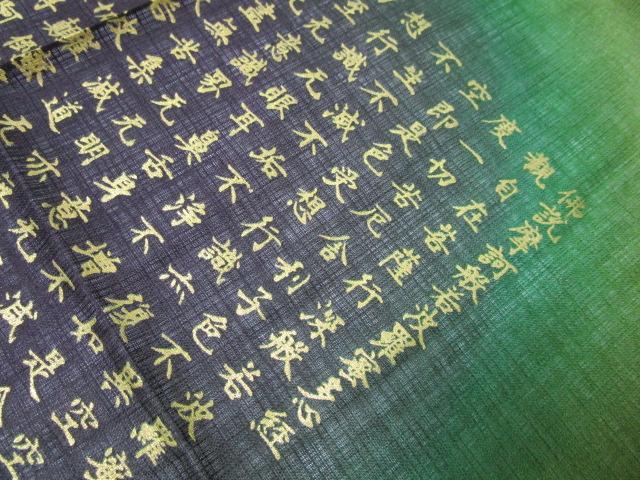 佛説摩訶般若波羅蜜多心経
觀自在菩薩行深般若波羅蜜
度一切苦厄舍利子色不異空空
空即是色受想行識亦復如是舍
不生不滅不垢不淨不增不減
想行識无眼耳鼻舌身意
至无意識界无无明亦无
盡無苦集滅道无